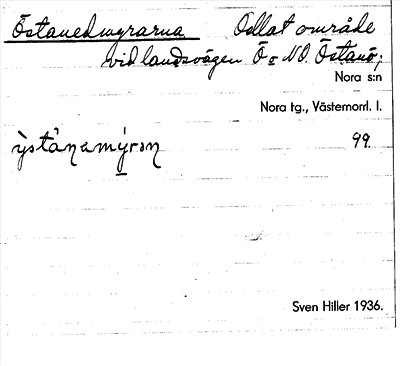 Östanedmyrarna Odlat område
vid landsvägen Ö o NO. Östanö;
Nora s:n
Nora tg., Västernorrl. l.
99.
Sven Hiller 1936.